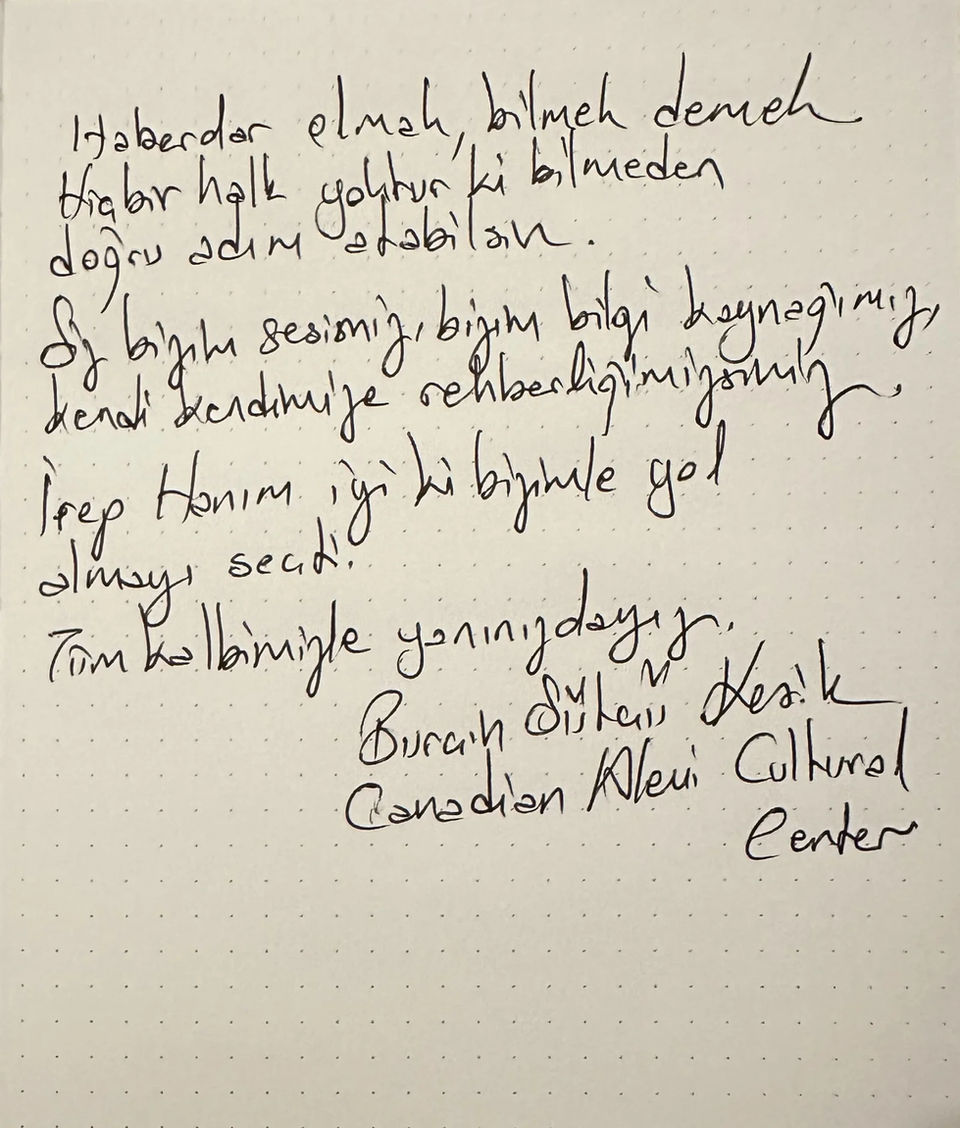 Haberdar olmak, bilmek demek
Hiçbir halk yoktur ki bilmeden
doğru adım atabilsin.
Siz bizim sesimiz, bizim bilgi kaynağımız,
kendi kendimize rehberliğimizsiniz.
Hanım iyi ki bizimle yol
almayı seçti.
Tüm kalbimizle yanınızdayız.
Burçin Kesik
Canadian Alevi Cultural
Center